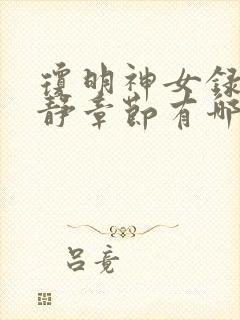 瓊明神女録
静章節有哪
吕竟